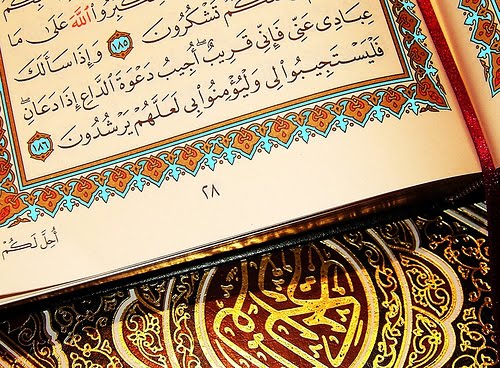 لَكُمْ تَشْكُرُونَ ١٨٥ وَإِذَا سَأَلَكَ
كَبِّرُوا اللَّهَ عَلَىٰ مَا
عِبَادِي عَنِّي فَإِنِّي قَرِيبٌ أُجِيبُ دَعْوَةَ الدَّاعِ إِذَا دَعَانِ
فَلْيَسْتَجِيبُوا لِي وَلْيُؤْمِنُوا بِي لَعَلَّهُمْ يَرْشُدُونَ ١٨٦
٢٨
أُحِلَّ لَكُمْ